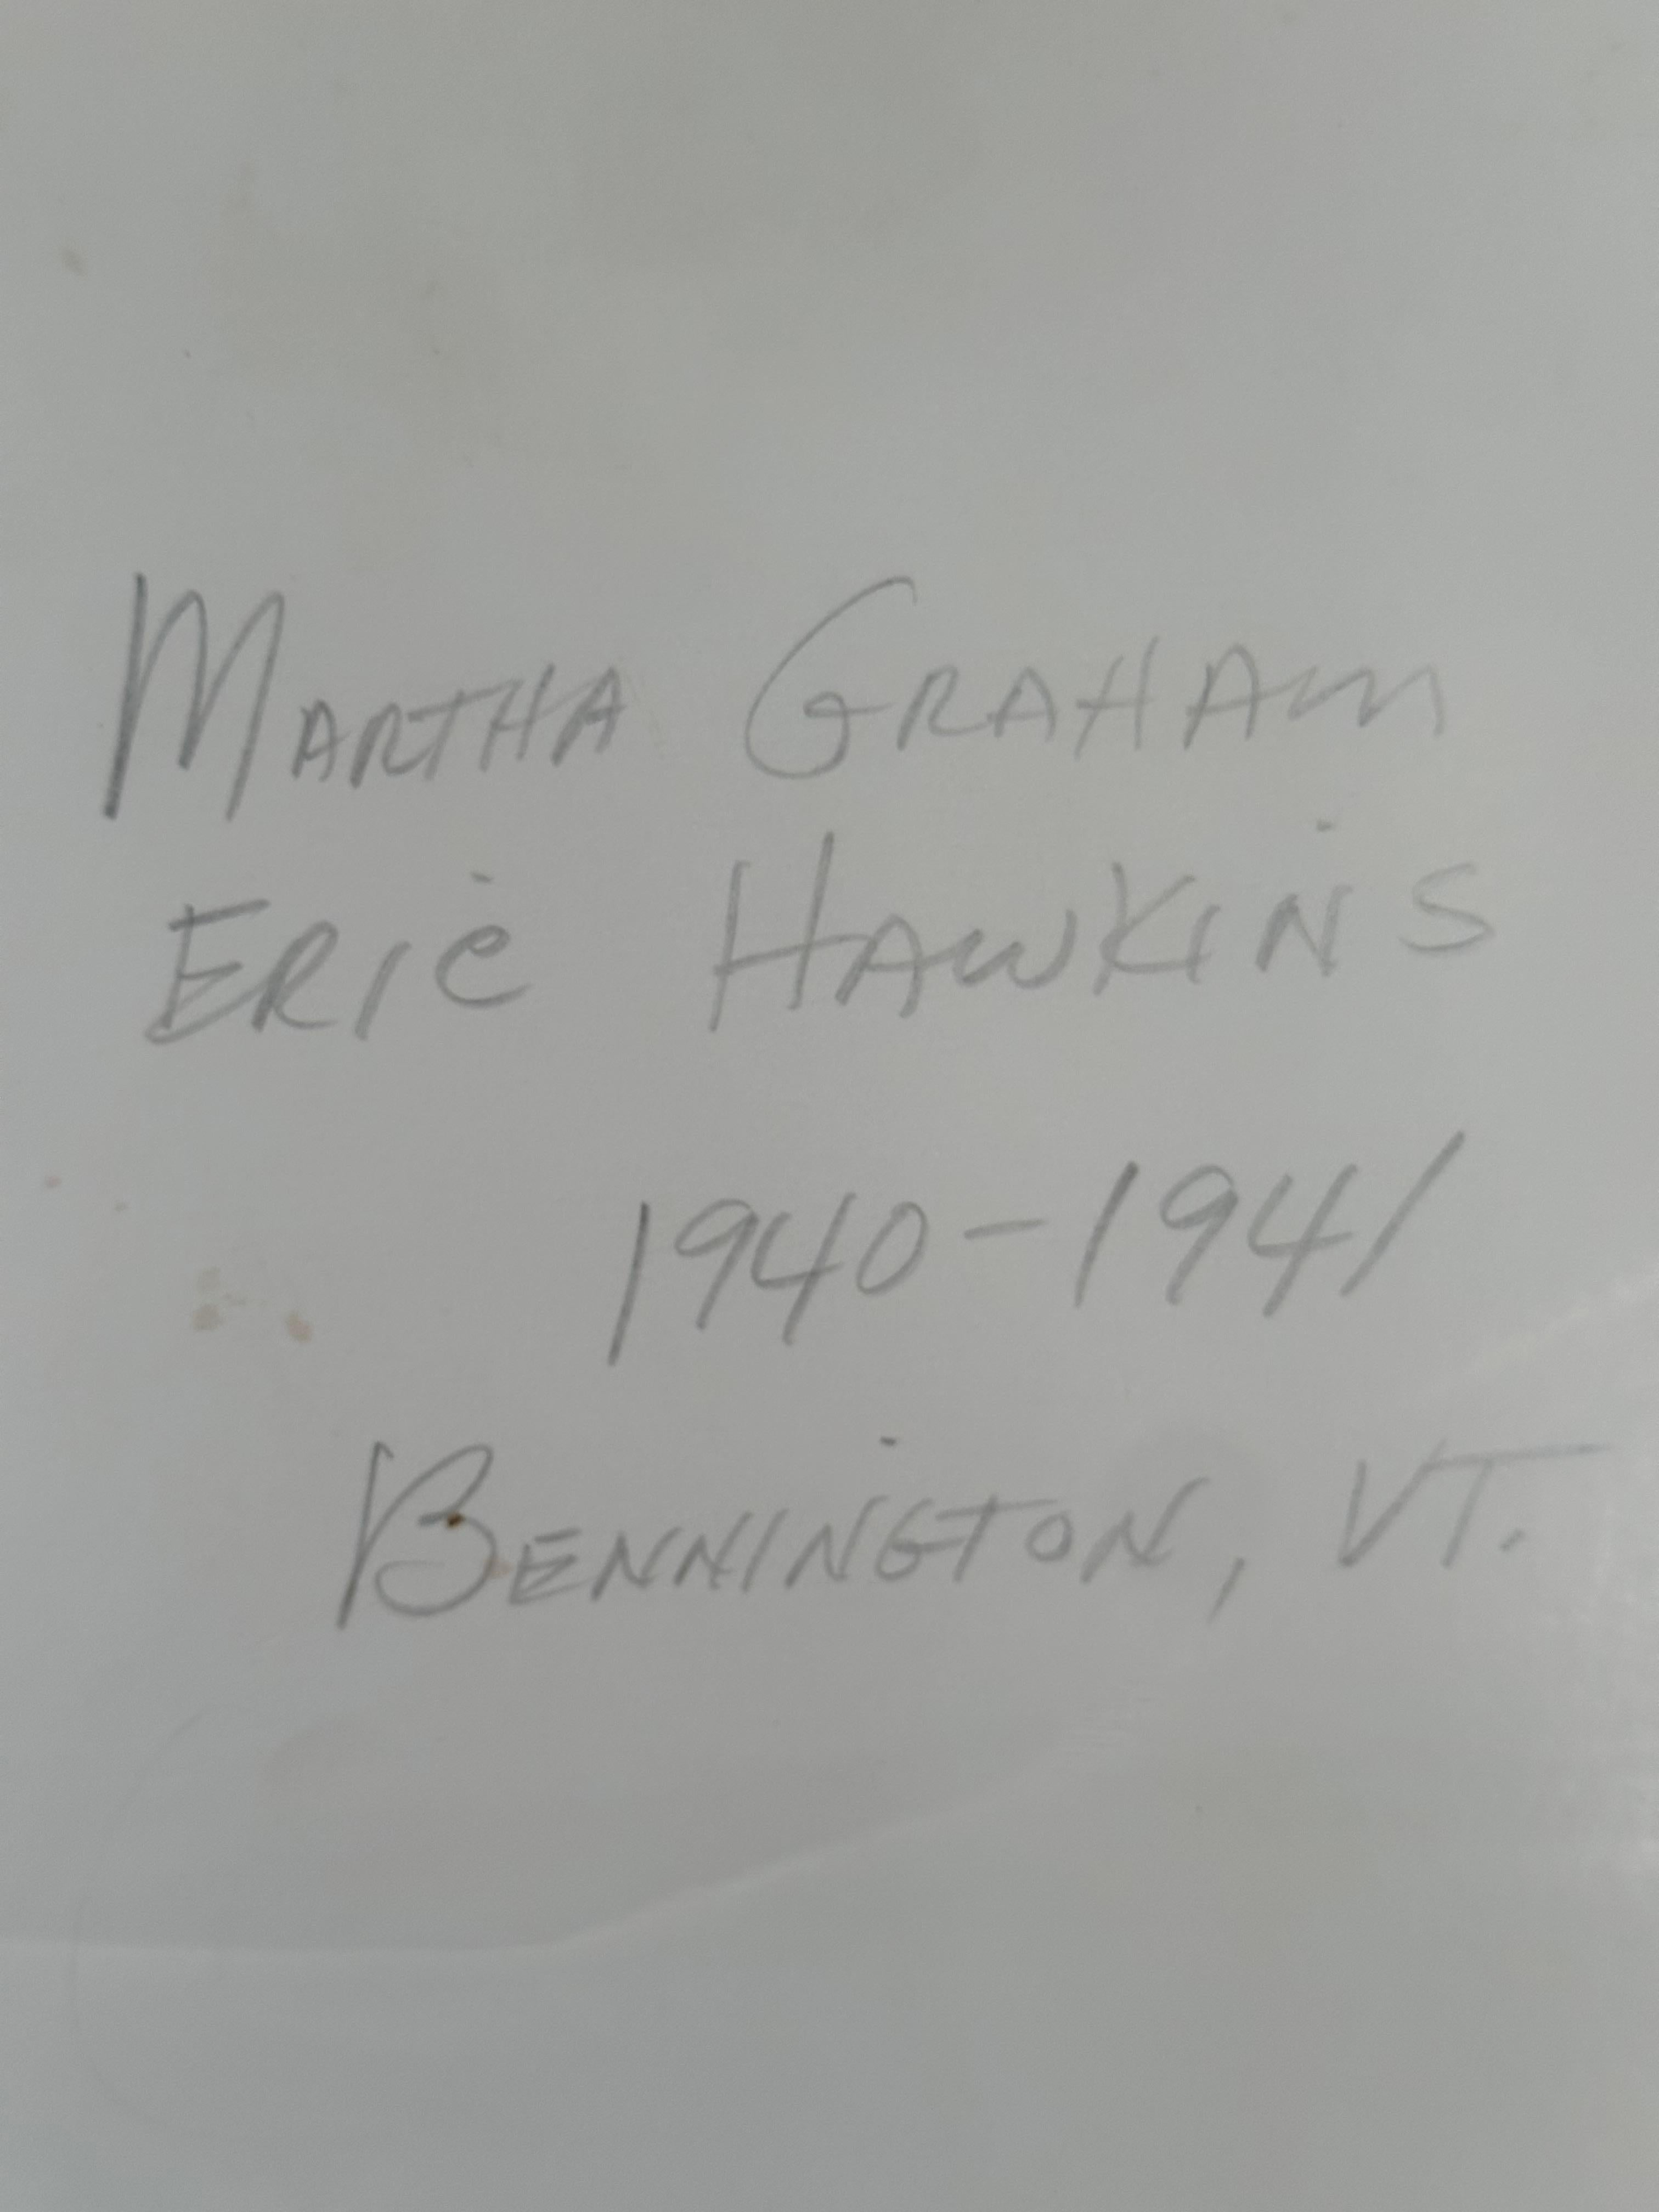 MARTHA GRAHAM
ERIC HAWKINS
1940-1941
BENNINGTON, VT.